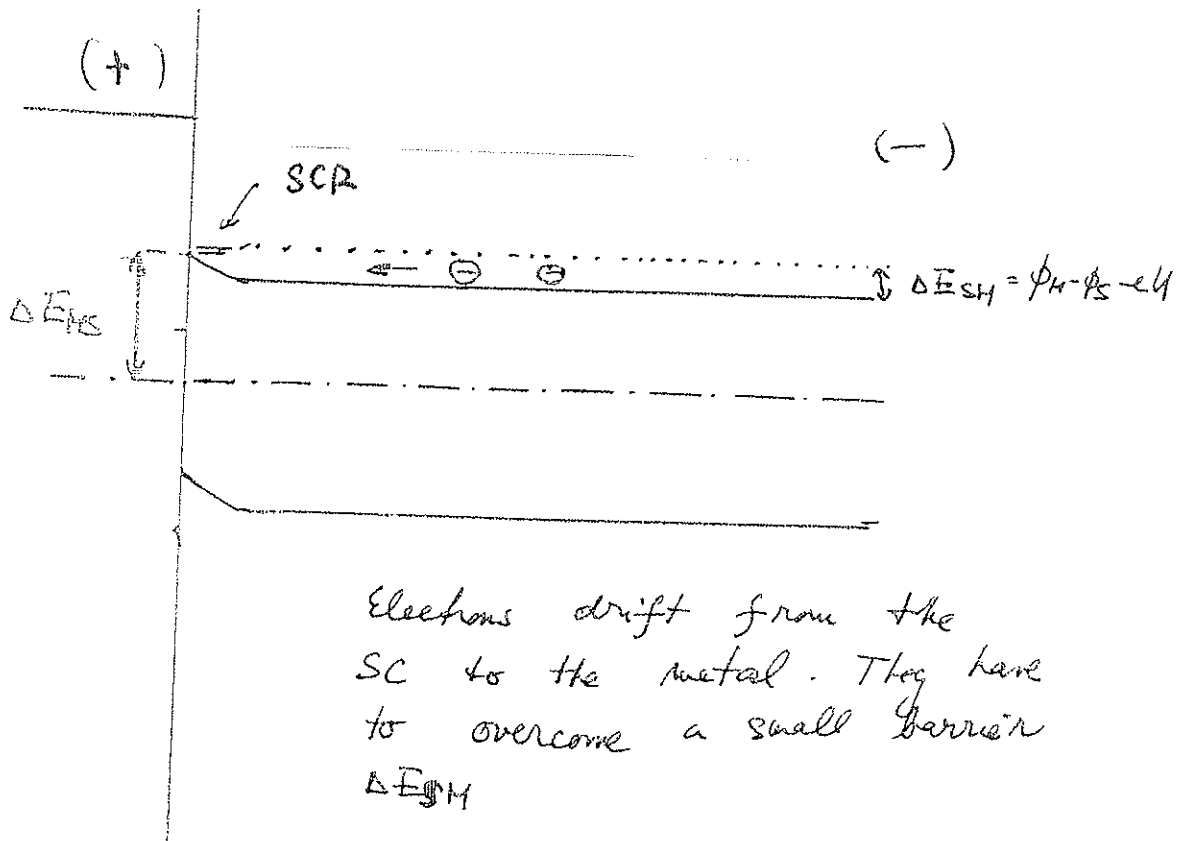 (+)
(—)
SCR
ΔE_MS
ΔE_SM = ϕ_M-ϕ_S-eU
Electrons drift from the
SC to the metal. They have
to overcome a small barrier
ΔE_SM